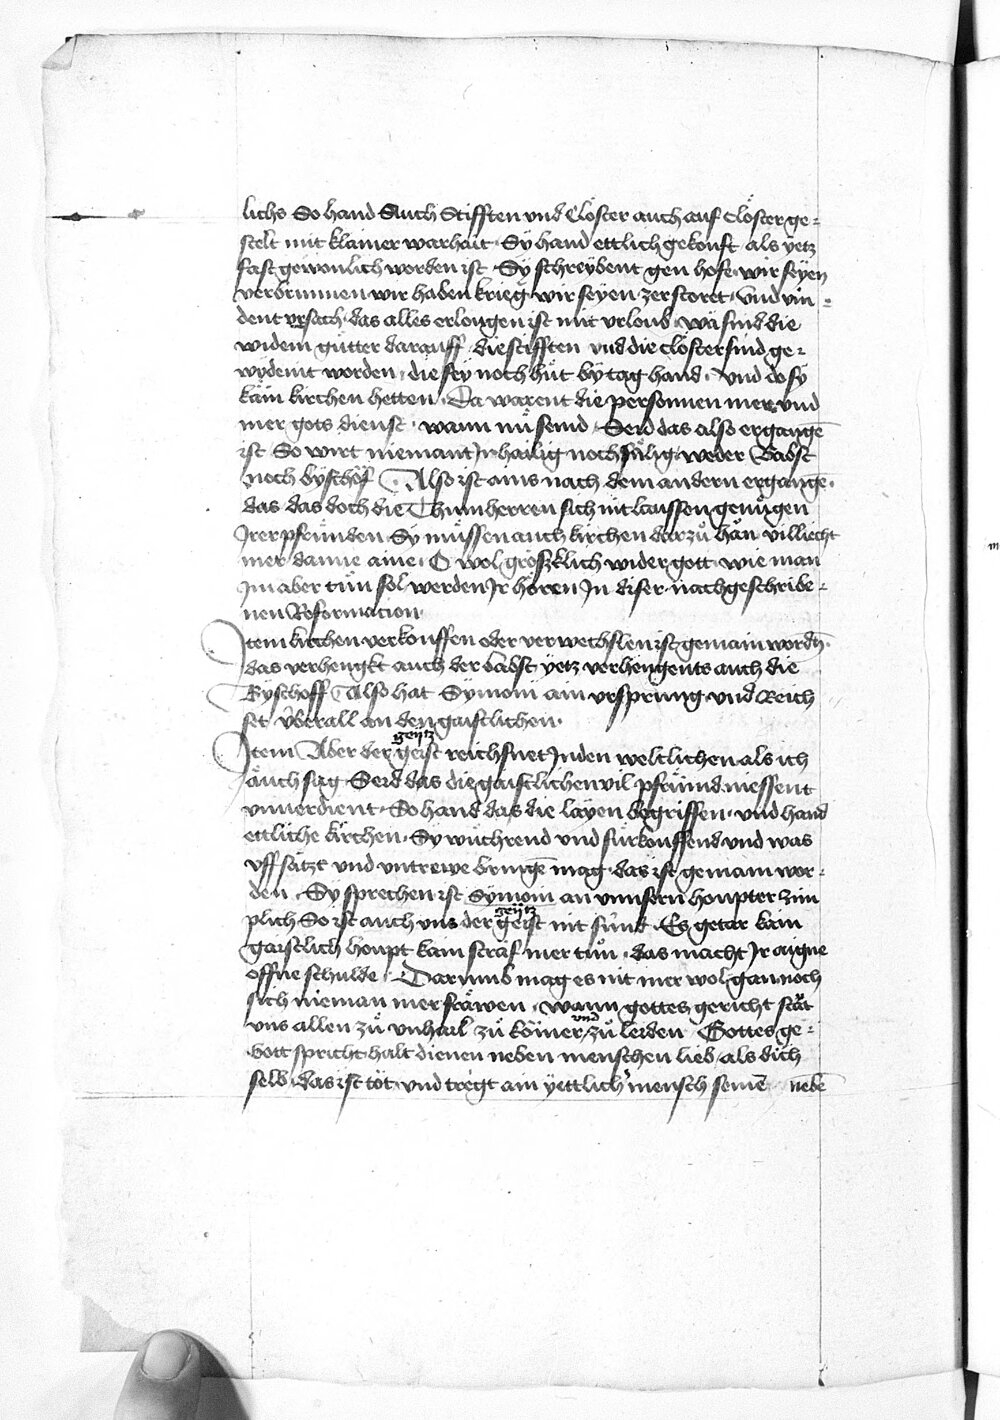 lichs So hand Auch Stifften vnd Clöster auch auf Clöster ge=
stelt mit klainer warhait · Sÿ hand ettlich gekouft als yetz
fast gewonlich worden ist · Sÿ schreÿbent gen hofe · wir seÿen
verbrunnen wir haben krieg · wir seÿen zerstoret · vnd vin=
dent vrsach · das alles erlongen ist mit vrloub · wa sind die
widem gütter darauff die stifften vnd die Clöster sind ge=
wydemt worden · die seÿ noch hüt bÿ tag hand · vnd do sÿ
käin kirchen hetten · Da warent die personnen mer vnd
mer gots dienst · wann nu̇ seind · Seid das also ergangē
ist So wirt niemant Jr hailig noch sälig weder Babst
noch byschof · Also ist ains nach dem andern ergangē ·
das das doch die Thumherren sich nit laussen genu̇gen
Jrer pfrunden · Sy müssen auch kirchen darzů hän villiecht
mer danne aine · O wol größklich wider gott · wie man
Jm aber tůn sol werden Jr hören Jn diser nachgeschribe=
nen Reformacion ·
Jtem kirchen verkouffen oder verwechslen ist gemain wordn̄ ·
das verhengkt auch der babst yetz verhengents auch die
Byschoff Also hat Symoni ain vrsprung vnd Reich
set v̇berall an den gaistlichen ·
geÿtz
Jtem Aber der geist reichsnet Jn den weltlichen als ich
äuch sag · Seid das die gaistlichen vil pfründ niessent
vnuerdient · So hand das die layen begriffen · vnd hand
ettliche kirchen · Sÿ wůchrend vnd fürkouffend vnd was
vffsätzt vnd vntrewe bringē mag · das ist gemain wor=
den · Sy sprechen ist Symoni an vnnsern houpter zim
geÿtz
plich So ist auch vns der geist nit sünd · Es getar kain
gaistlich houpt kain straf mer tůn · das macht Jr aigne
offne schulde · Darumb mag es nit mer wol gan noch
sich nieman mer fräwen · wann gottes gericht stät
vnd
vns allen zů vnhail zů kömer zů leiden Gottes ge=
bott spricht halt dienen neben menschen lieb als dich
selb · das ist tot · vnd tregt ain yettlich mensch seinē nebē